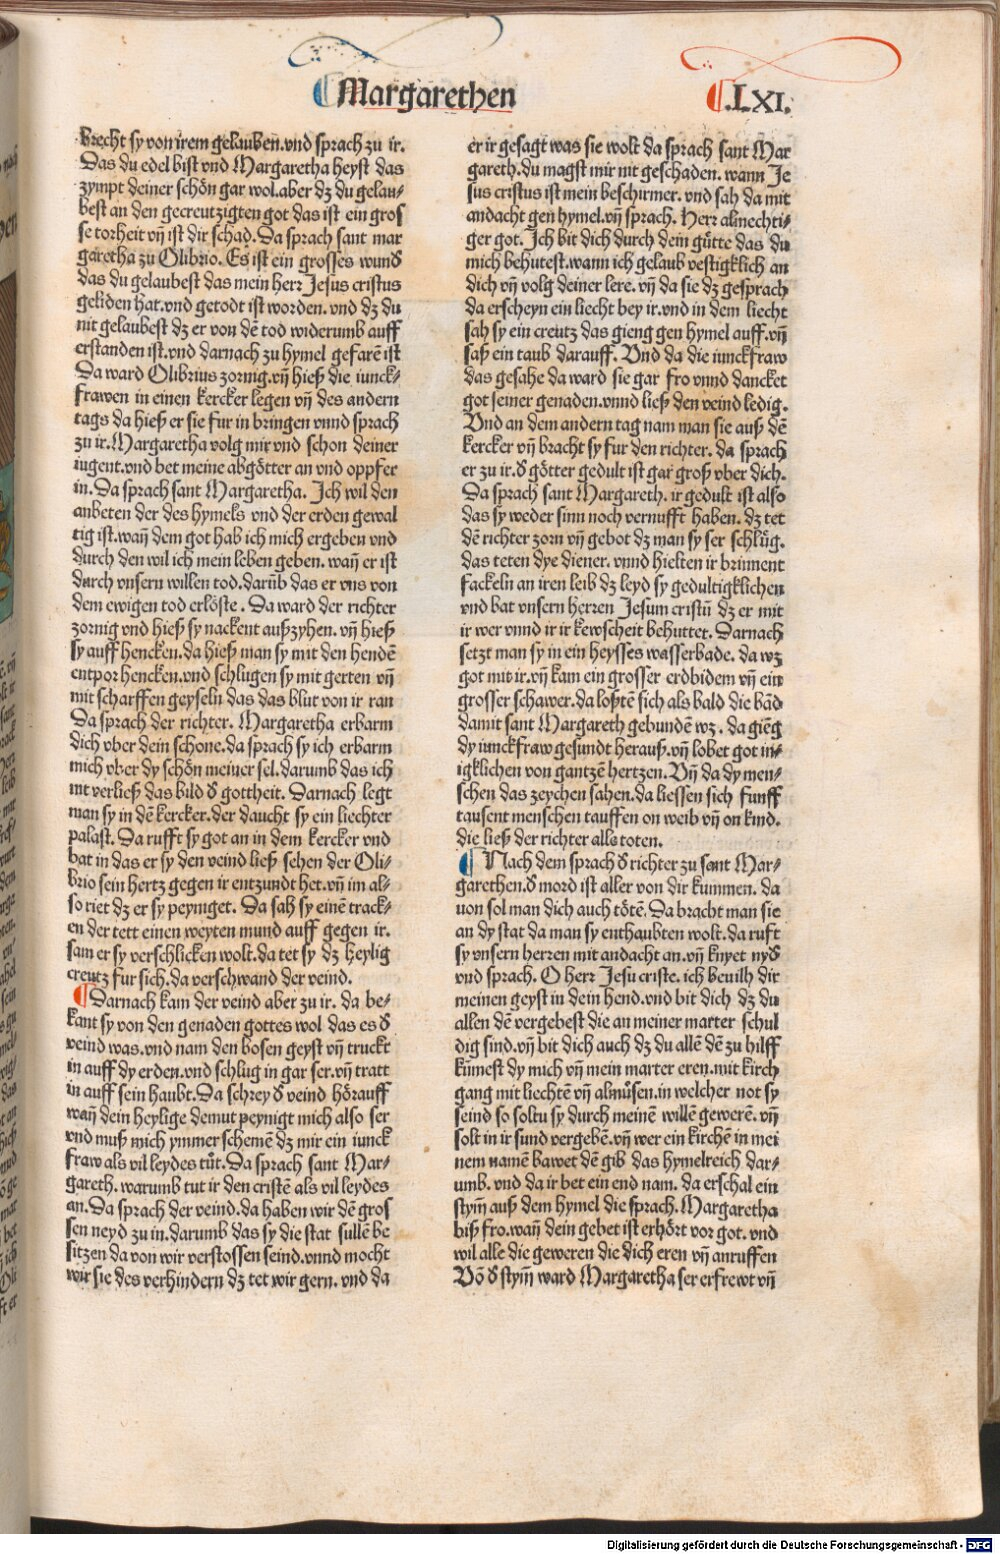 Margarethen
.LXI.
brecht sy von irem gelauben.vnd sprach zu ir.
Das du edel bist vnd Margaretha heyst das
zympt deiner schön gar wol.aber dz du gelau-
best an den gecreutzigten got das ist ein gros
se torheit vñ ist dir schad. Da sprach sant mar
garetha zu Olibrio. Es ist ein grosses wund
das du gelaubest das mein herr Jesus cristus
geliden hat.vnd getodt ist worden. vnd dz du
nit gelaubest dz er von dē tod widerumb auff
erstanden ist.vnd darnach zu hymel gefarē ist
Da ward Olibrius zornig.vñ hieß die iunck-
frawen in einen kercker legen vñ des andern
tags da hieß er sie fur in bringen vnnd sprach
zu ir.Margaretha volg mir vnd schon deiner
iugent.vnd bet meine abgötter an vnd oppfer
in.Da sprach sant Margaretha. Ich wil den
anbeten der des hymels vnd der erden gewal
tig ist.wañ dem got hab ich mich ergeben vnd
durch den wil ich mein leben geben. wañ er ist
durch vnsern willen tod.darūb das er vns von
dem ewigen tod erlöste. Da ward der richter
zornig vnd hieß sy nackent außzyhen. vñ hieß
sy auff hencken.da hieß man sy mit den hendē
entpor hencken.vnd schlugen sy mit gerten vñ
mit scharffen geyseln das das blut von ir ran
Da sprach der richter. Margaretha erbarm
dich vber dein schone.da sprach sy ich erbarm
mich vber dy schön meiner sel.darumb das ich
nit verließ das bild d gottheit. Darnach legt
man sy in dē kercker.der daucht sy ein liechter
palast. Da rufft sy got an in dem kercker vnd
bat in das er sy den veind ließ sehen der Oli-
brio sein hertz gegen ir entzundt het.vñ im al-
so riet dz er sy peyniget. Da sah sy einē track-
en der tett einen weyten mund auff gegen ir.
sam er sy verschlicken wolt.da tet sy dz heylig
creutz fur sich.da verschwand der veind.
¶ Darnach kam der veind aber zu ir. da be-
kant sy von den genaden gottes wol das es d
veind was.vnd nam den bosen geyst vñ truckt
in auff dy erden.vnd schlug in gar ser.vñ tratt
in auff sein haubt.Da schrey d veind hörauff
wañ dein heylige demut peynigt mich also ser
vnd muß mich ymmer schemē dz mir ein iunck
fraw als vil leydes tüt.Da sprach sant Mar-
gareth. warumb tut ir den cristē als vil leydes
an.Da sprach der veind.da haben wir dē gros
sen neyd zu in.darumb das sy die stat sullē be
sitzen da von wir verstossen seind.vnnd mocht
wir sie des verhindern dz tet wir gern. vnd da
er ir gesagt was sie wolt da sprach sant Mar
gareth.du magst mir nit geschaden. wann Je
sus cristus ist mein beschirmer. vnd sah da mit
andacht gen hymel.vñ sprach. Herr almechti-
ger got. Ich bit dich durch dein gütte das du
mich behutest.wann ich gelaub vestigklich an
dich vñ volg deiner lere. vñ da sie dz gesprach
da erscheyn ein liecht bey ir.vnd in dem liecht
sah sy ein creutz das gieng gen hymel auff.vñ
saß ein taub darauff. Vnd da die iunckfraw
das gesahe da ward sie gar fro vnnd dancket
got seiner genaden.vnnd ließ den veind ledig.
Vnd an dem andern tag nam man sie auß dē
kercker vñ bracht sy fur den richter. da sprach
er zu ir.d götter gedult ist gar groß vber dich.
Da sprach sant Margareth. ir gedult ist also
das sy weder sinn noch vernufft haben. dz tet
dē richter zorn vñ gebot dz man sy ser schlüg.
das teten dye diener. vnnd hielten ir brinnent
fackeln an iren leib dz leyd sy gedultigklichen
vnd bat vnsern herren Jesum cristū dz er mit
ir wer vnnd ir ir kewscheit behuttet. Darnach
setzt man sy in ein heysses wasserbade. da wz
got mit ir.vñ kam ein grosser erdbidem vñ ein
grosser schawer.da loßtē sich als bald die bād
damit sant Margareth gebundē wz. da giēg
dy iunckfraw gesundt herauß.vñ lobet got in-
igklichen von gantzē hertzen. Vñ da dy men-
schen das zeychen sahen.da liessen sich funff
tausent menschen tauffen on weib vñ on kind.
die ließ der richter alle toten.
¶ Nach dem sprach d richter zu sant Mar-
garethen.d mord ist aller von dir kummen. da
uon sol man dich auch tötē. Da bracht man sie
an dy stat da man sy enthaubten wolt.da ruft
sy vnsern herren mit andacht an.vñ knyet nyd
vnd sprach. O herr Jesu criste. ich beuilh dir
meinen geyst in dein hend.vnd bit dich dz du
allen dē vergebest die an meiner marter schul
dig sind.vñ bit dich auch dz du allē dē zu hilff
kūmest dy mich vñ mein marter eren.mit kirch
gang mit liechtē vñ almüsen.in welcher not sy
seind so soltu sy durch meinē willē gewerē. vñ
solt in ir sund vergebē.vñ wer ein kirchē in mei
nem namē bawet dē gib das hymelreich dar-
umb. vnd da ir bet ein end nam. da erschal ein
stym̄ auß dem hymel die sprach. Margaretha
biß fro.wañ dein gebet ist erhört vor got. vnd
wil alle die geweren die dich eren vñ anruffen
Vō d stym̄ ward Margaretha ser erfrewt vñ
Digitalisierung gefördert durch die Deutsche Forschungsgemeinschaft - DFG